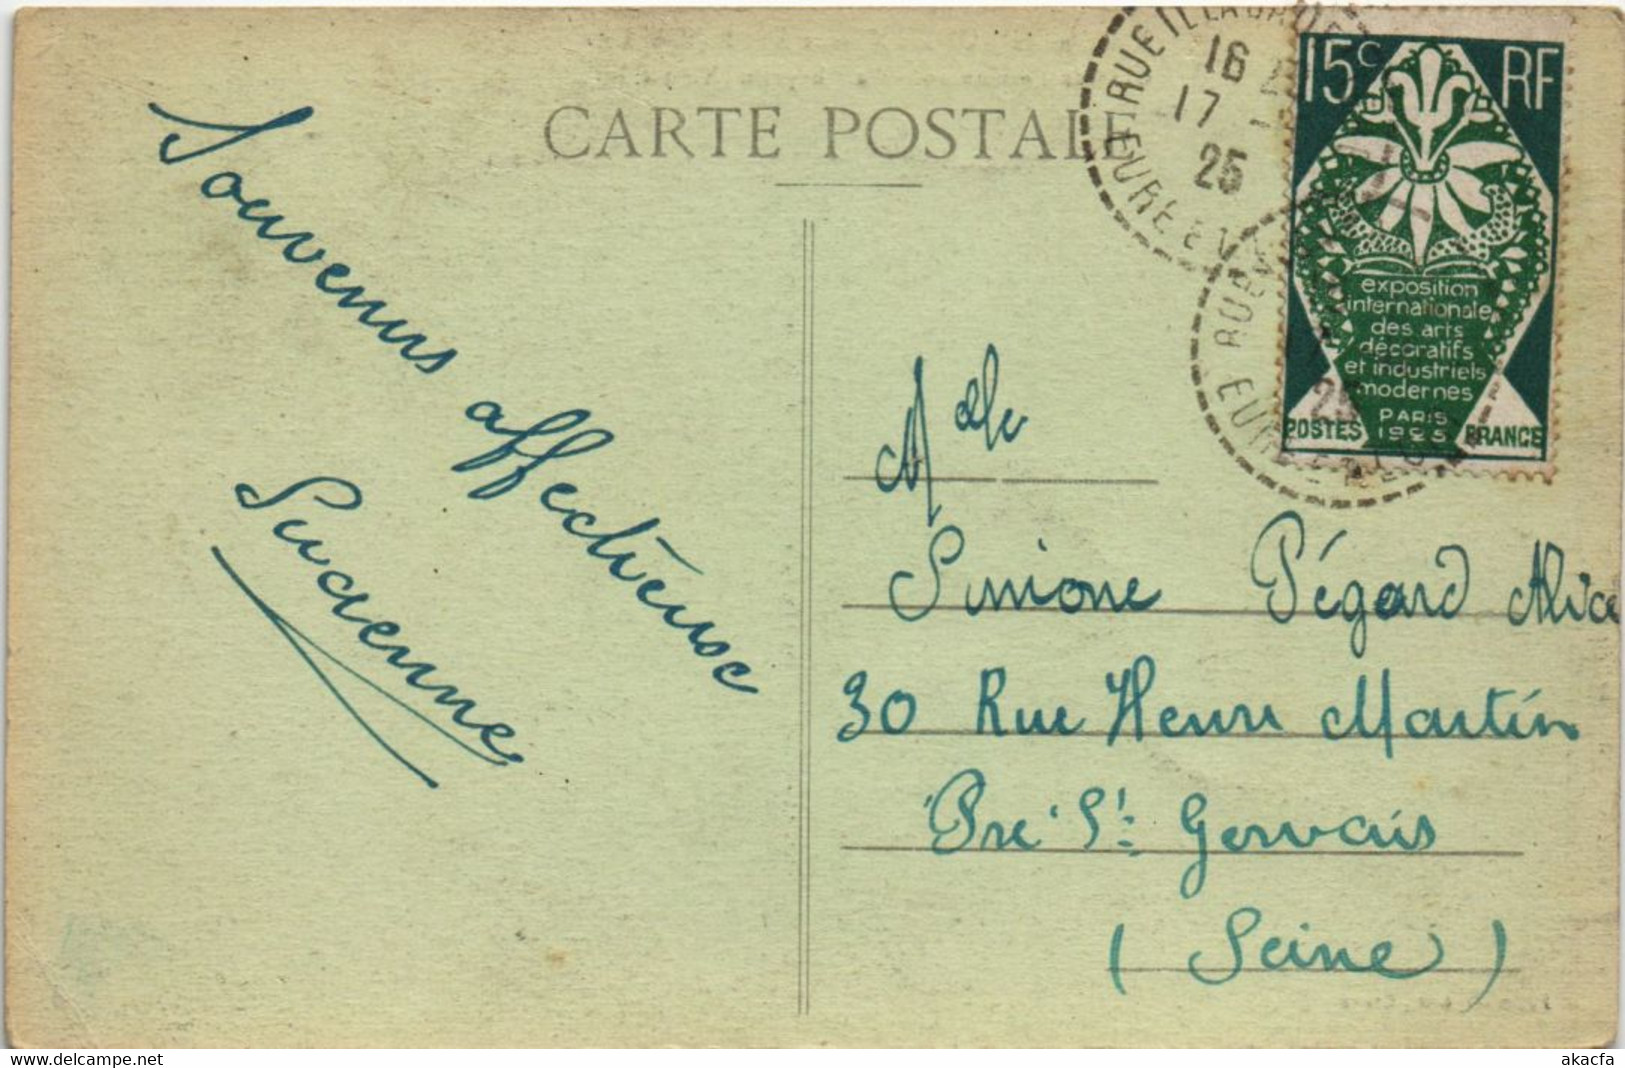 CARTE POSTALE
Souvenirs affectueux
Sudenne
Melle
Simone Pégard Alice
30 Rue Henri Martin
Pré St Gervais
(Seine)
RUEIL LA GAD
16
17
25
EURE ET
RUE
25
EURE
15c RF
exposition
internationale
des arts
décoratifs
et industriels
modernes
PARIS
POSTES 1925 FRANCE
delcampe.net
akacfa